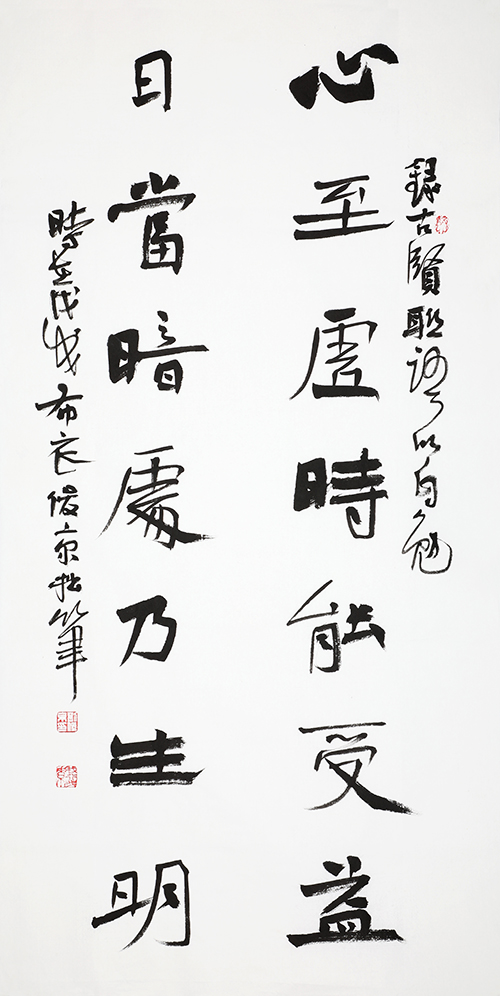 録古賢聯語以自勉
心至虛時能受益
日當暗處乃生明
時在戊戌布衣俊京拙筆